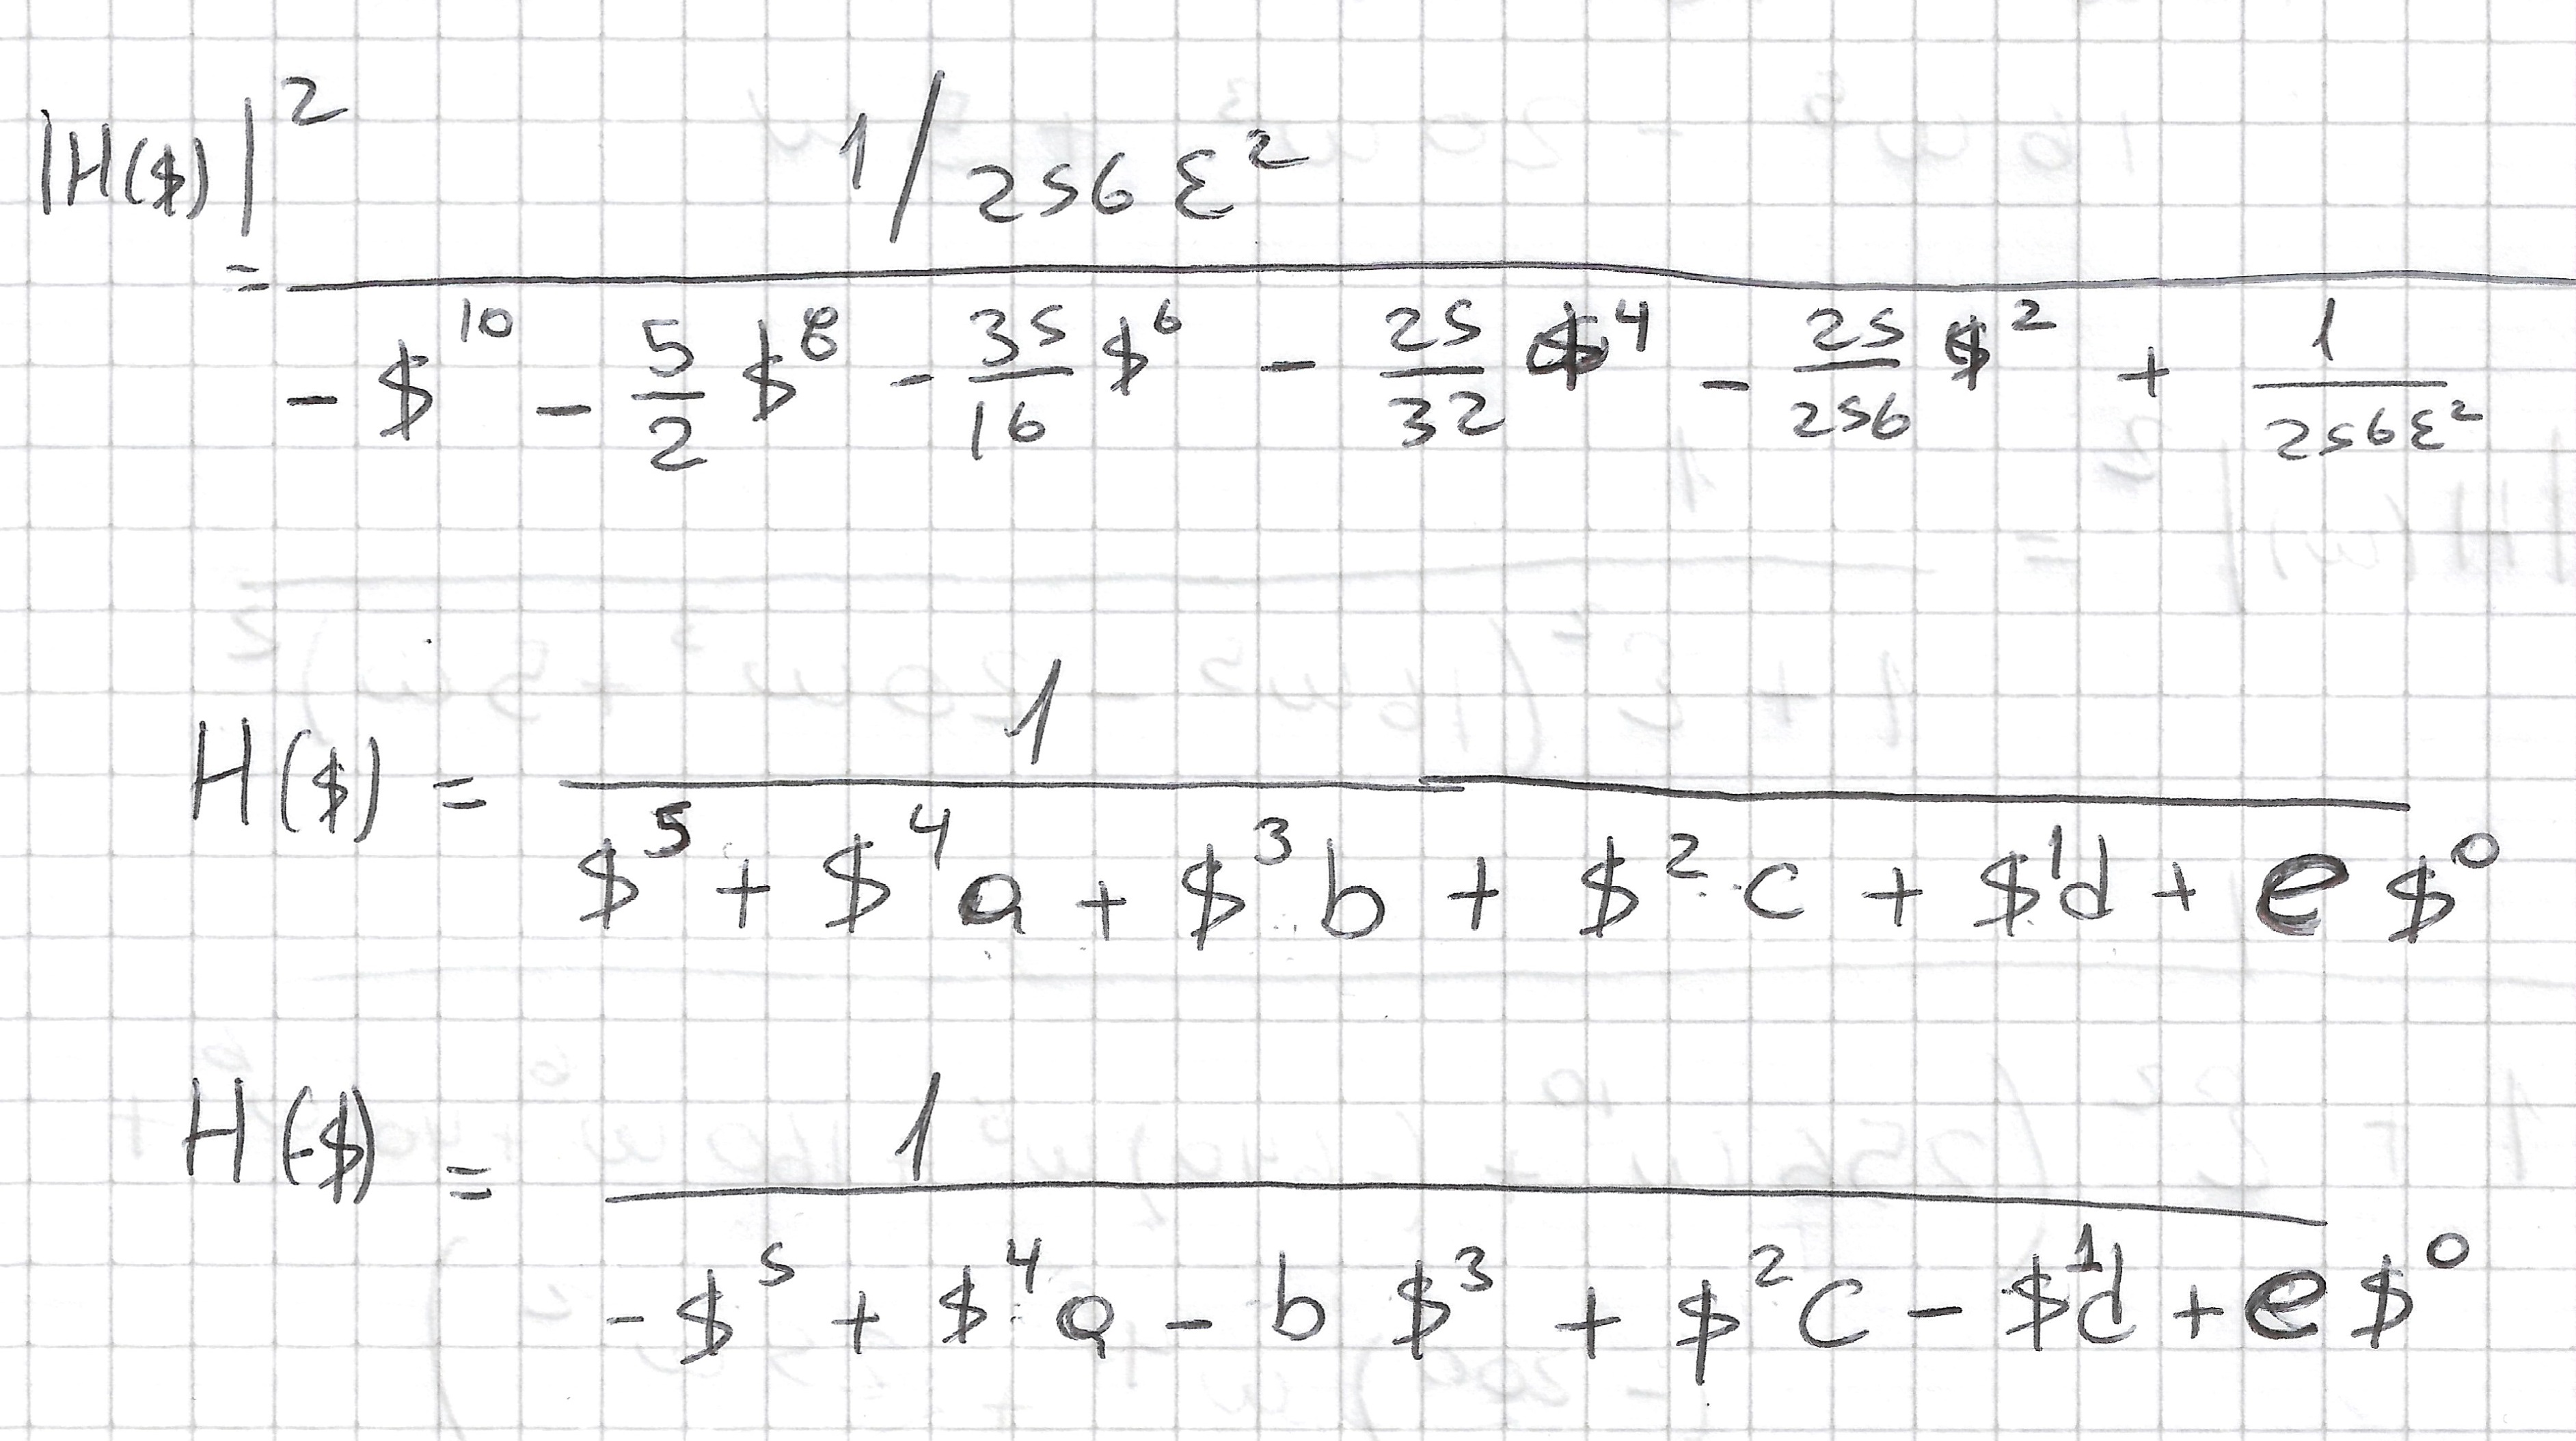 |H($)|² = (1/256 ε²) / (-$¹⁰ - 5/2 $⁸ - 35/16 $⁶ - 25/32 $⁴ - 25/256 $² + 1/256ε²)
H($) = 1 / ($⁵ + $⁴a + $³b + $²c + $¹d + e$⁰)
H(-$) = 1 / (-$⁵ + $⁴a - b$³ + $²c - $¹d + e$⁰)